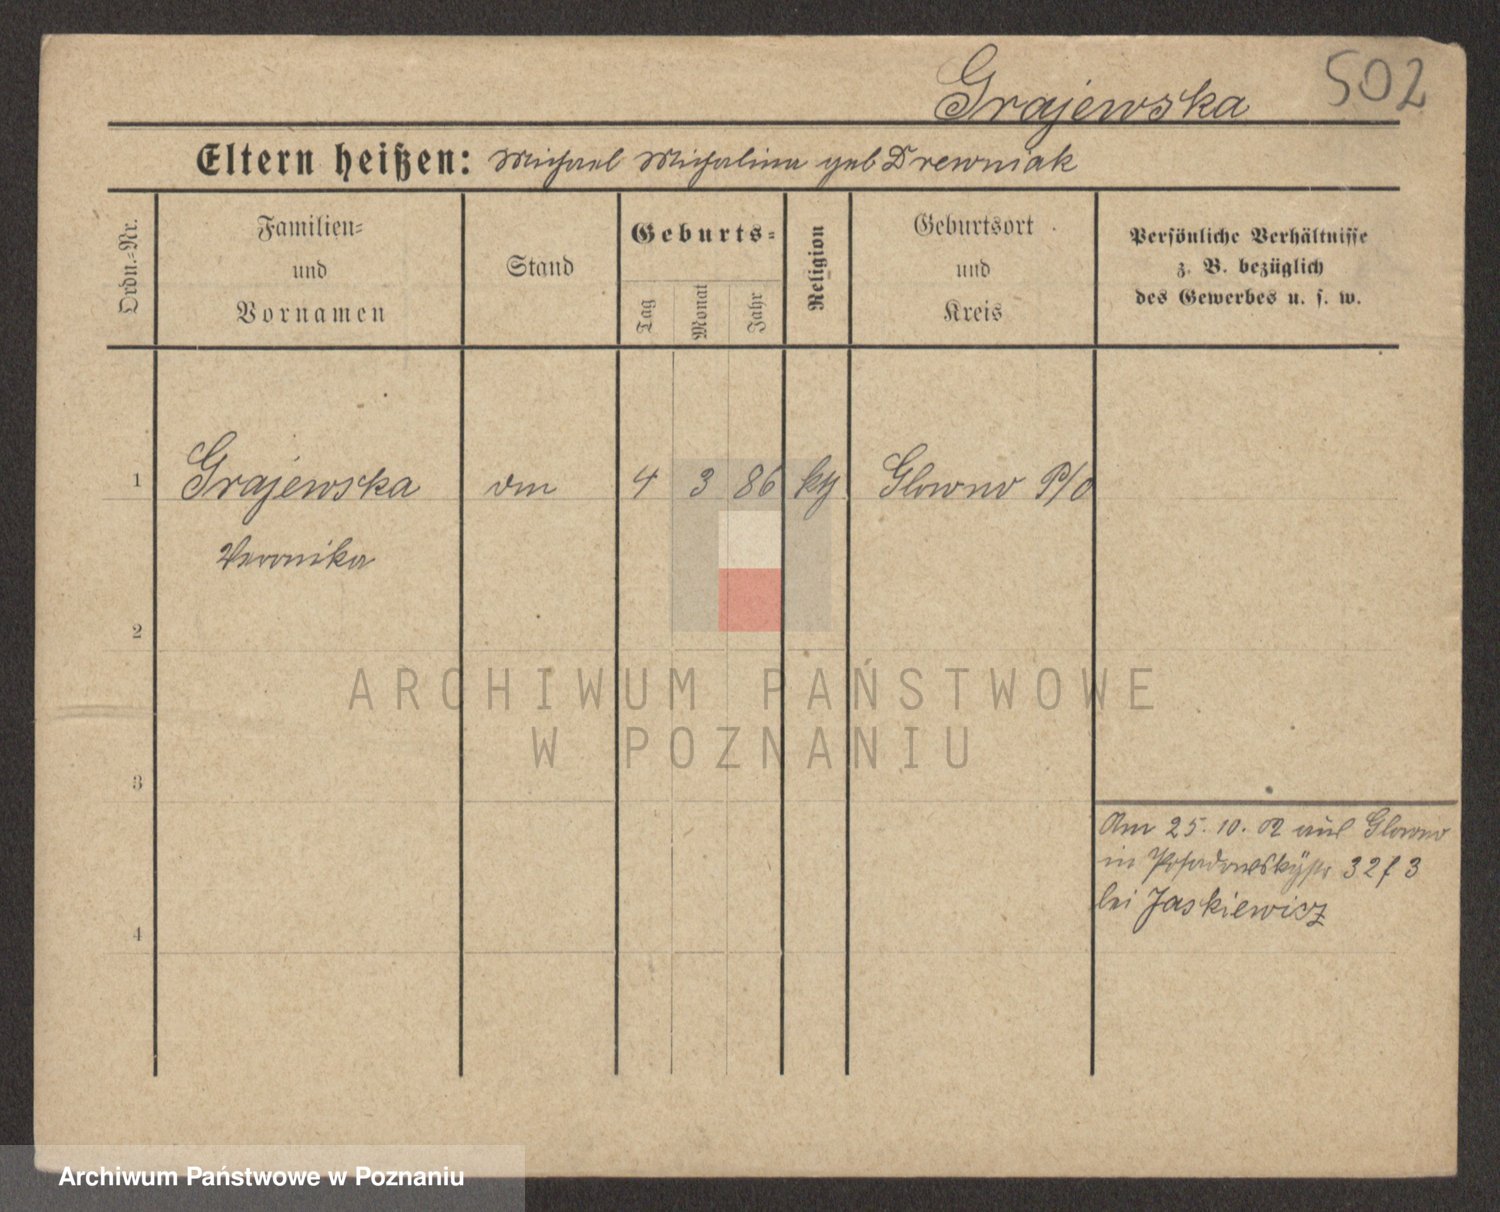 502
Grajewska
Eltern heißen: Michael Michalina geb Drewniak
Ordn.-Nr.
Familien-
und
Vornamen
Stand
Geburts-
Tag
Monat
Jahr
Religion
Geburtsort
und
Kreis
Persönliche Verhältnisse
z. B. bezüglich
des Gewerbes u. s. w.
1 Grajewska 4 3 86 kth Glowno P/O
Veronika
2
3
4
Am 25. 10. 02 aus Glowno
in Posadowskystr 32 f 3
bei Jaskiewicz
ARCHIWUM PAŃSTWOWE
W POZNANIU
Archiwum Państwowe w Poznaniu